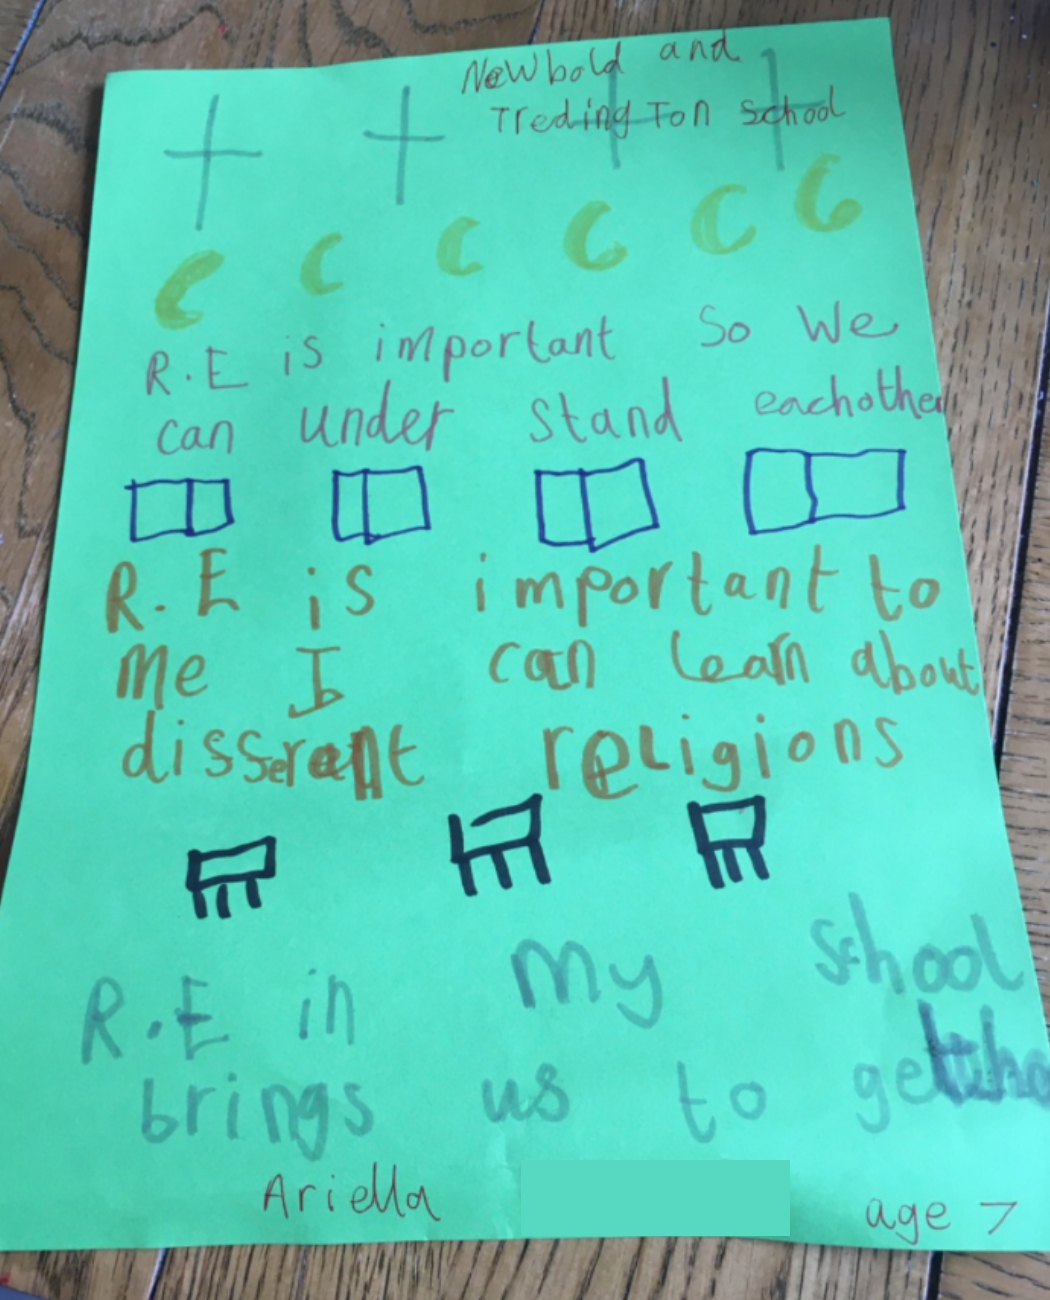 Newbold and
Tredington School
R.E is important So We
can under stand eachother
R.E is important to
me I can learn about
disserent religions
R.E in my school
brings us to getthe
Ariella
age 7